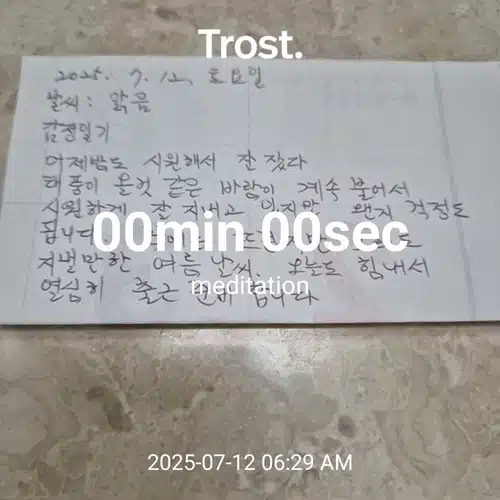 Trost.
2025. 7. 12. 토요일
날씨 : 맑음
감정일기
어제밤도 시원해서 잘 잤다
태풍이 올것 같은 바람이 계속 불어서
시원하게 잘 지내고 있지만 왠지 걱정도
됩니다
00min 00sec
지낼만한 여름 날씨. 오늘도 힘내서
meditation
열심히 출근 준비 합니다
2025-07-12 06:29 AM